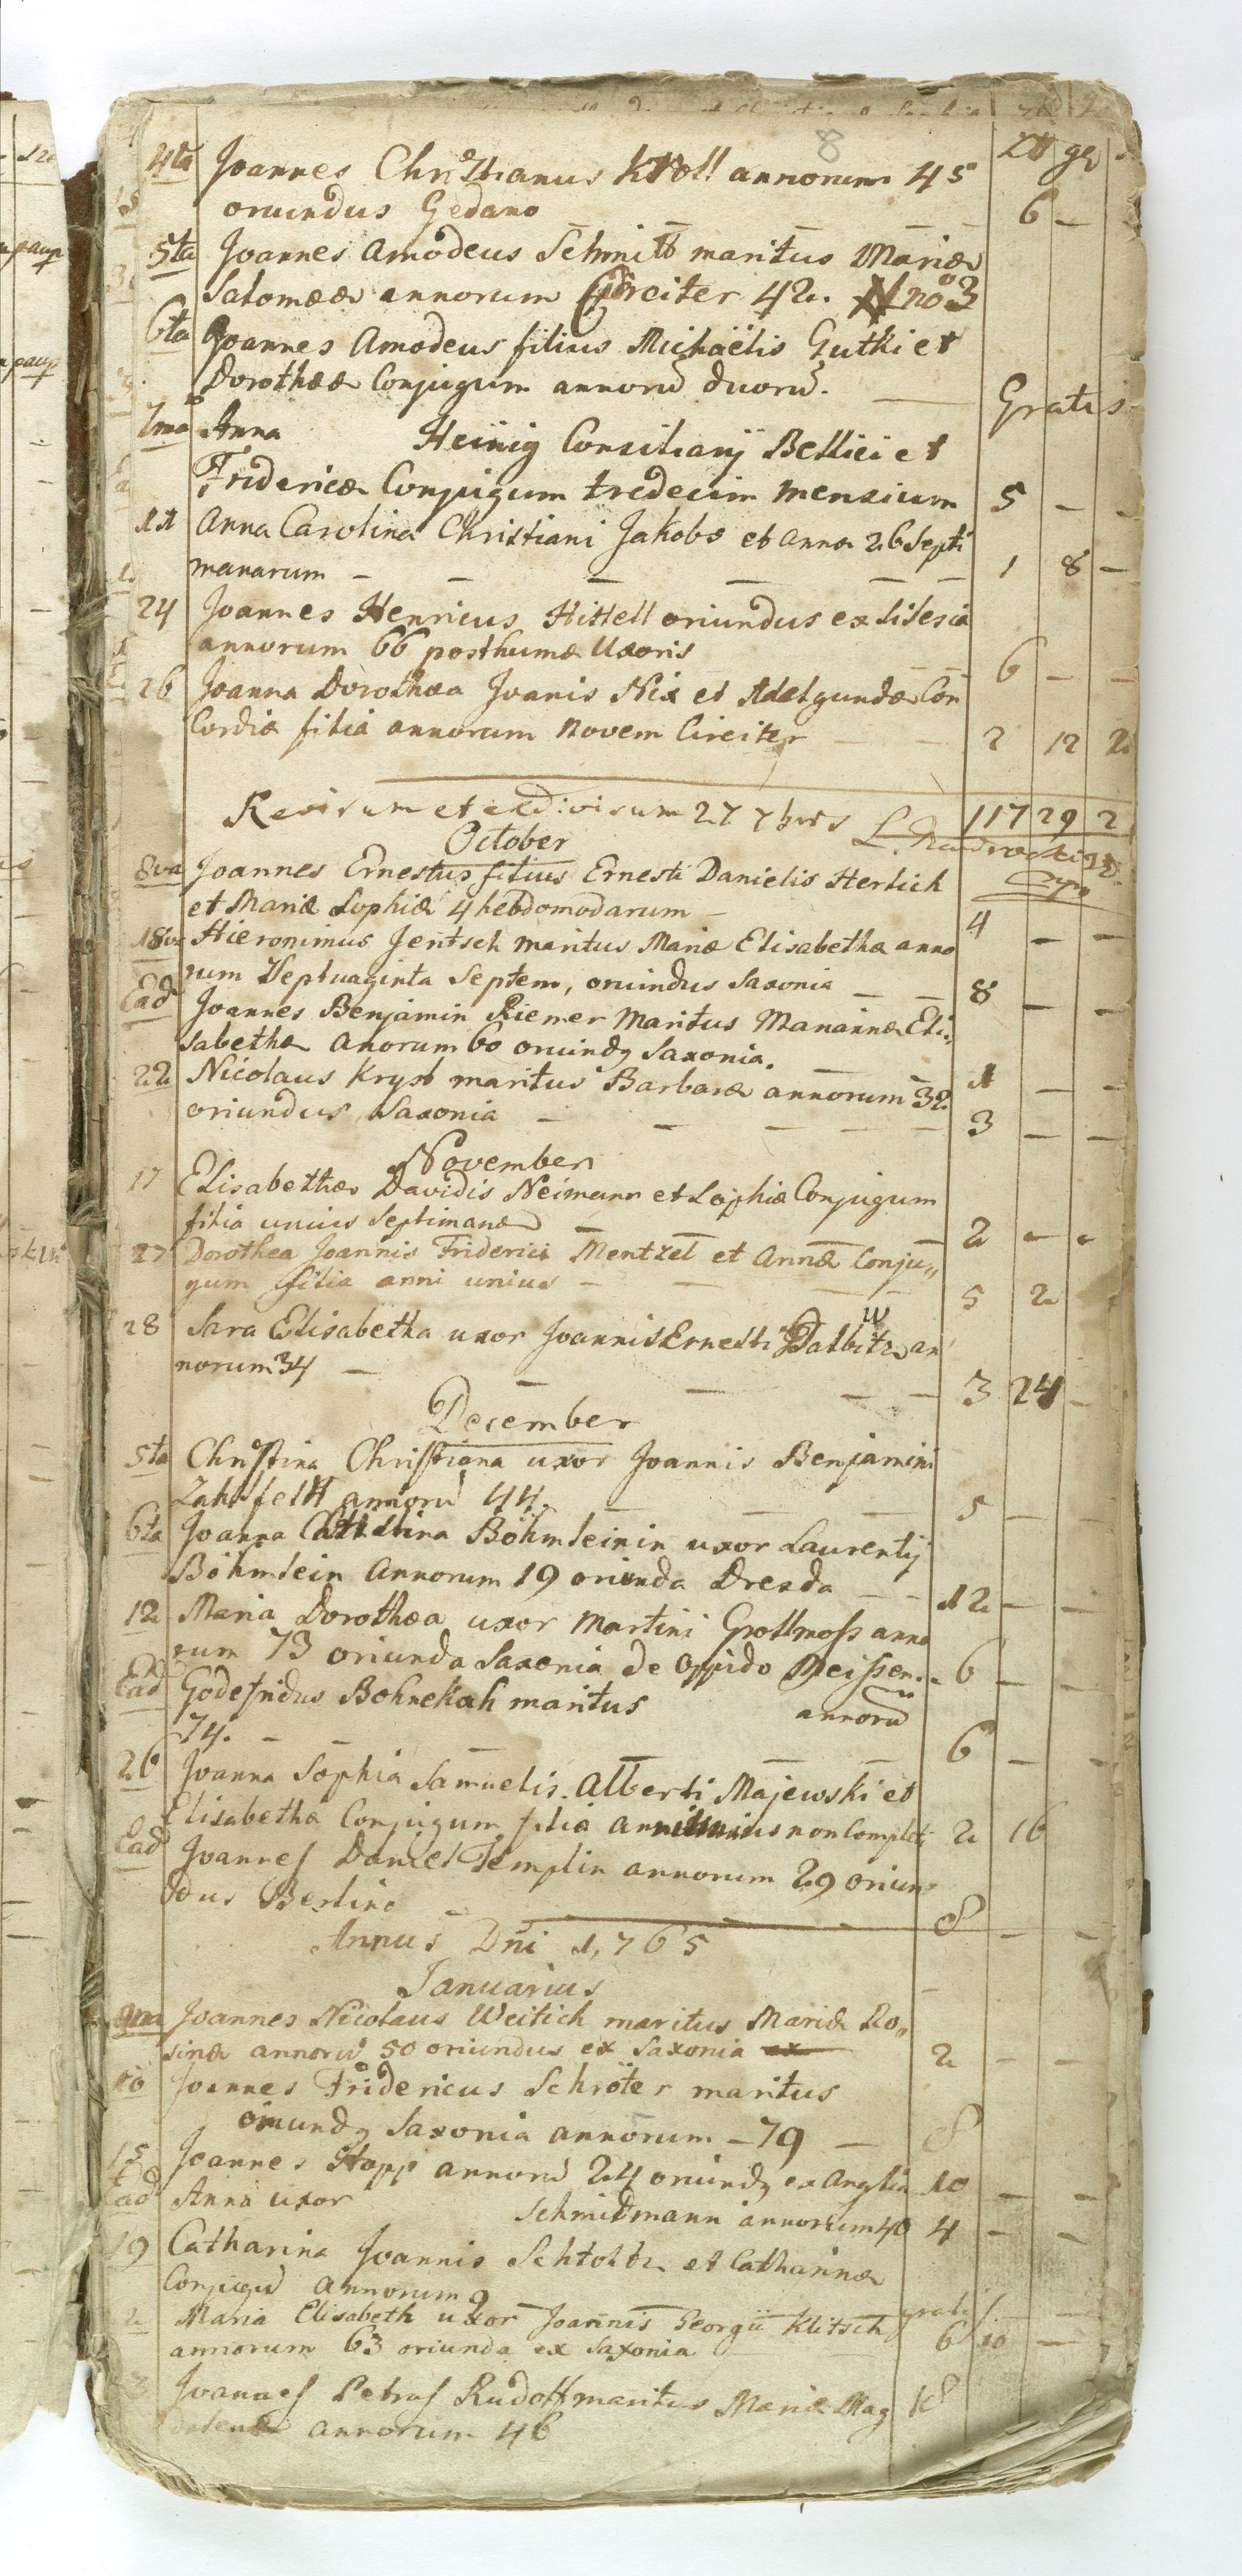 8
Zł gr
4ta Joannes Christianus Kroll annorum 45
oriundus Gedano 6 — —
5ta Joannes Amodeus Schmitt maritus Mariæ
Salomææ annorum Circiter 42. No 3
6ta Joannes Amodeus filius Michaëlis Gutki et
Dorothææ Conjugum annorū duorū. — Gratis
7ma Anna Heinig Consiliarij Bellici et
Fridericæ Conjugum tredecim mensium 5 — —
11 Anna Carolina Christiani Jakobs et Annæ 26 Septi
manarum — — — — — — 1 8 —
24 Joannes Henricus Hittell oriundus ex Silesia
annorum 66 posthumæ Uxoris 6 — —
26 Joanna Dorothæa Joanis Nix et Adelgundæ Con
Cordiæ filia annorum novem Circiter — — 2 12 2
Revisum et exdivisum 27 7bris 117 29 2
October
8va Joannes Ernestus filius Ernesti Danielis Herlich
et Mariæ Sophiæ 4 hebdomodarum — 4 — —
18va Hieronimus Jentsch maritus Mariæ Elisabethæ anno
rum Septuaginta Septem, oriundus Saxonia — — 8 — —
Ead Joannes Benjamin Riemer Maritus Mariannæ Eli„
sabethæ Anorum 60 oriundq Saxonia. 1 — —
22 Nicolaus Kryst maritus Barbaræ annorum 32
oriundus Saxonia — — — — — 3 — —
November
17 Elisabethæ Davidis Neimann et Sophiæ Conjugum
filia unius Septimanæ — — 2 — —
27 Dorothea Joannis Friderici Mentzel et Annæ Conju„
gum filia anni unius — — — — 5 2
28 Sara Elisabetha uxor Joannis Ernesti Walbitz an
norum 34 — — — — — 3 24 —
December
5ta Christina Christiana uxor Joannis Benjamini
Zahnfeldt annorū 44. — — — 5 — —
6ta Joanna Christina Böhmleinin uxor Laurentij
Böhmlein Annorum 19 oriunda Dresda — — 12 — —
12 Maria Dorothæa uxor Martini Grollmoss anno
rum 73 oriunda Saxonia de Oppido Meissen. — 6 — —
Ead Godefridus Bohnekah maritus annorū
74. — — — 6 — —
26 Joanna Sophia Samuelis Alberti Majewski et
Elisabethæ Conjugum filia anni unius non Complet: 2 16
Ead Joannes Daniel Templin annorum 29 oriun
dus Berlino — 8 — —
Annus Dni 1,765
Januarius
9na Joannes Nicolaus Weitich maritus Mariæ Ro„
sinæ annorū 50 oriundus ex Saxonia 2 — —
10 Joannes Fridericus Schröter maritus
oriundq Saxonia annorum — 79 — 8
15 Joannes Stopp annorū 24 oriundq ex Anglia 10 — —
Ead Anna uxor Schmidtmann annorum 40 4 — —
19 Catharina Joannis Schtoltz et Catharinæ
Conjugū annorum 9 gratis
2 Maria Elisabeth uxor Joannis Georgii Klitsch
annorum 63 oriunda ex Saxonia 6 10 —
3 Joannes Petrus Rudolff maritus Mariæ Mag 18
dalenæ annorum 46